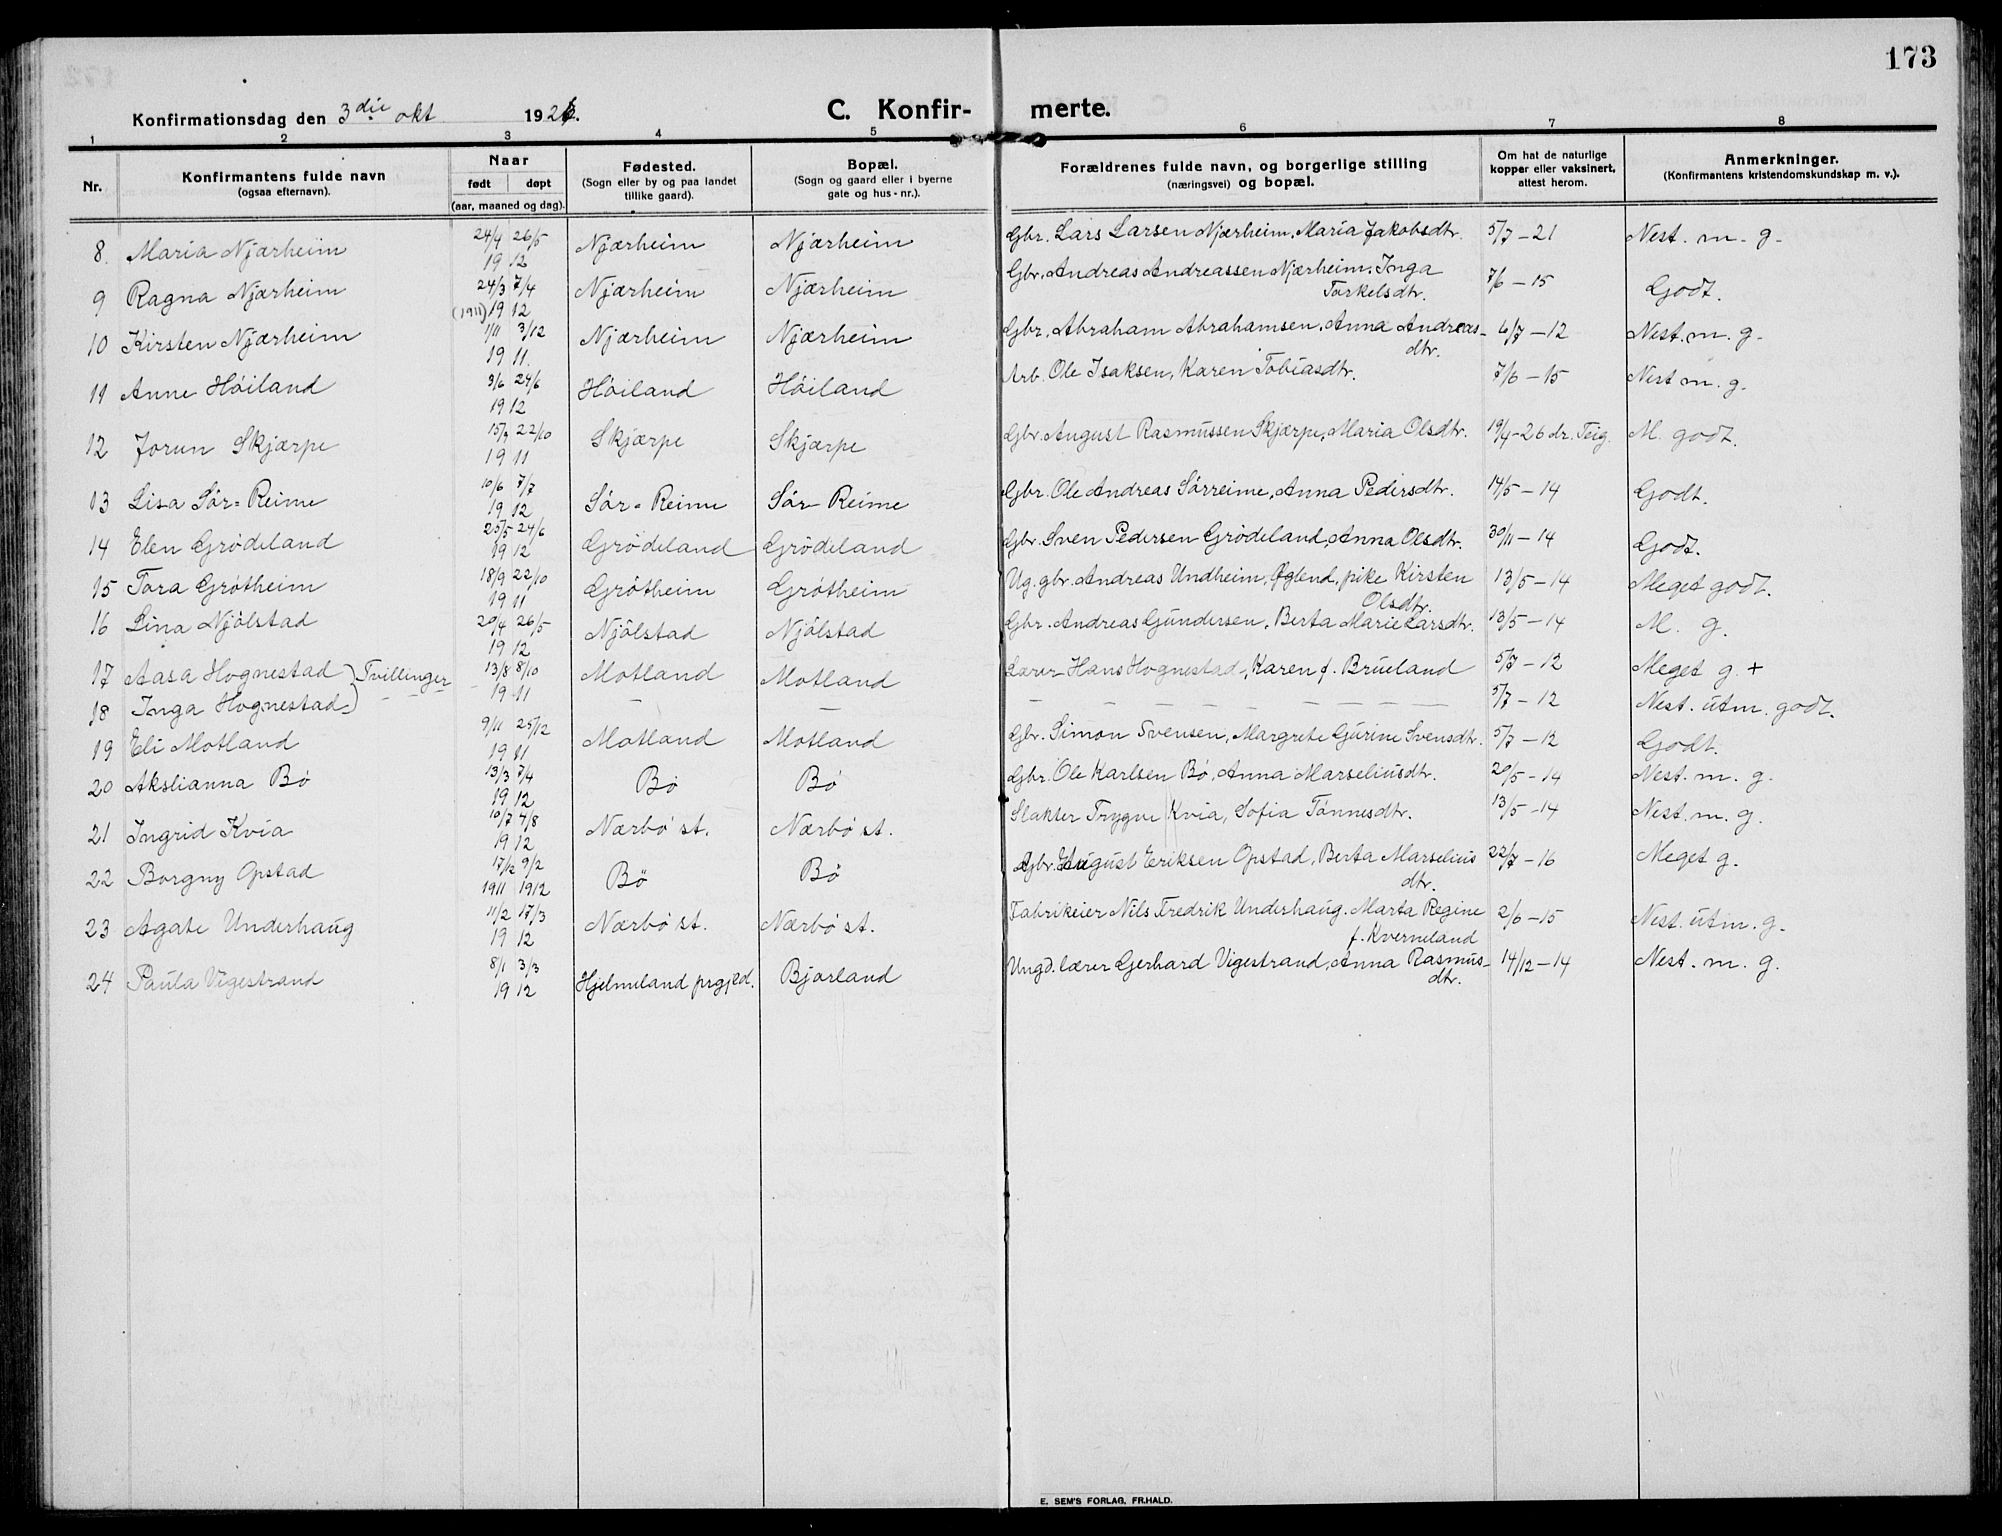 173
Konfirmationsdag den 3die okt 1926.
C. Konfir- merte.
1 2 3 4 5 6 7 8
Nr.
Konfirmantens fulde navn
(ogsaa efternavn).
Naar
født døpt
(aar, maaned og dag).
Fødested.
(Sogn eller by og paa landet
tillike gaard).
Bopæl.
(Sogn og gaard eller i byerne
gate og hus-nr.).
Forældrenes fulde navn, og borgerlige stilling
(næringsvei) og bopæl.
Om hat de naturlige
kopper eller vaksinert,
attest herom.
Anmerkninger.
(Konfirmantens kristendomskundskap m. v.).
8. Maria Njærheim 24/4 26/5 Njærheim Njærheim Gbr. Lars Larsen Njærheim, Maria Jakobsdtr. 5/7-21 Nest. m. g.
19 12
9 Ragna Njærheim 24/3 7/4 Njærheim Njærheim Gbr. Andreas Andreassen Njærheim, Inga 7/6-15 Godt.
(1911) 19 12 Torkelsdtr.
10 Kirsten Njærheim 1/11 3/12 Njærheim Njærheim Gbr. Abraham Abrahamsen, Anna Andreas- 4/7-12 Nest. m. g.
19 11. dtr.
11 Anne Høiland 9/6 24/6 Høiland Høiland Arb. Ole Isaksen, Karen Tobiasdtr. 7/6-15 Nest m. g.
19 12
12 Jorun Skjærpe 15/9 22/10 Skjærpe Skjærpe Gbr. August Rasmussen Skjærpe, Maria Olsdtr. 19/4-26 dr. Teig. M. godt.
19 11
13 Lisa Sør-Reime 10/6 7/7 Sør-Reime Sør-Reime Gbr. Ole Andreas Sørreime, Anna Pedersdtr. 14/5-14 Godt.
19 12
14 Elen Grødeland 25/5 24/6 Grødeland Grødeland Gbr. Sven Pedersen Grødeland, Anna Olsdtr. 30/11-14 Godt.
19 12
15 Tora Grøtheim 18/9 22/10 Grøtheim Grøtheim Ug. gbr. Andreas Undheim, Øglend, pike Kirsten 13/5-14 Meget godt.
19 11 Olsdtr.
16 Lina Njølstad 20/4 26/5 Njølstad Njølstad Gbr. Andreas Gundersen, Berta Marie Larsdtr. 13/5-14 M. g.
19 12
17 Aasa Hognestad ) Tvillinger 13/8 8/10 Motland Motland Lærer Hans Hognestad, Karen f. Brueland 5/7-12 Meget g. +
19 11
18 Inga Hognestad ) - - - - - - - - - - - 5/7-12 Nest. utm. godt.
19 Eli Motland 9/11 25/12 Motland Motland Gbr. Simon Svensen, Margrete Gurine Svensdtr. 5/7-12 Godt.
19 11
20 Akslianna Bø 13/3 7/4 Bø Bø Gbr. Ole Karlsen Bø, Anna Marseliusdtr. 20/5-14 Nest. m. g.
19 12
21 Ingrid Kvia 10/7 4/8 Nærbø st. Nærbø st. Slakter Trygve Kvia, Sofia Tønnesdtr. 13/5-14 Nest. m. g.
19 12
22 Borgny Opstad 17/12 9/2 Bø Bø Gbr. August Eriksen Opstad, Berta Marselius 22/7-16 Meget g.
1911 1912 dtr.
23 Agate Underhaug 11/2 17/3 Nærbø st. Nærbø st. Fabrikeier Nils Fredrik Underhaug. Marta Regine 2/6-15 Nest. utm. g.
19 12 f. Kverneland
24 Paula Vigestrand 8/1 3/3 Hjelmeland prgjeld. Bjorland Ungd. lærer Gerhard Vigestrand, Anna Rasmus- 14/12-14 Nest. m. g.
19 12 dtr.
E. SEM'S FORLAG, FR.HALD.